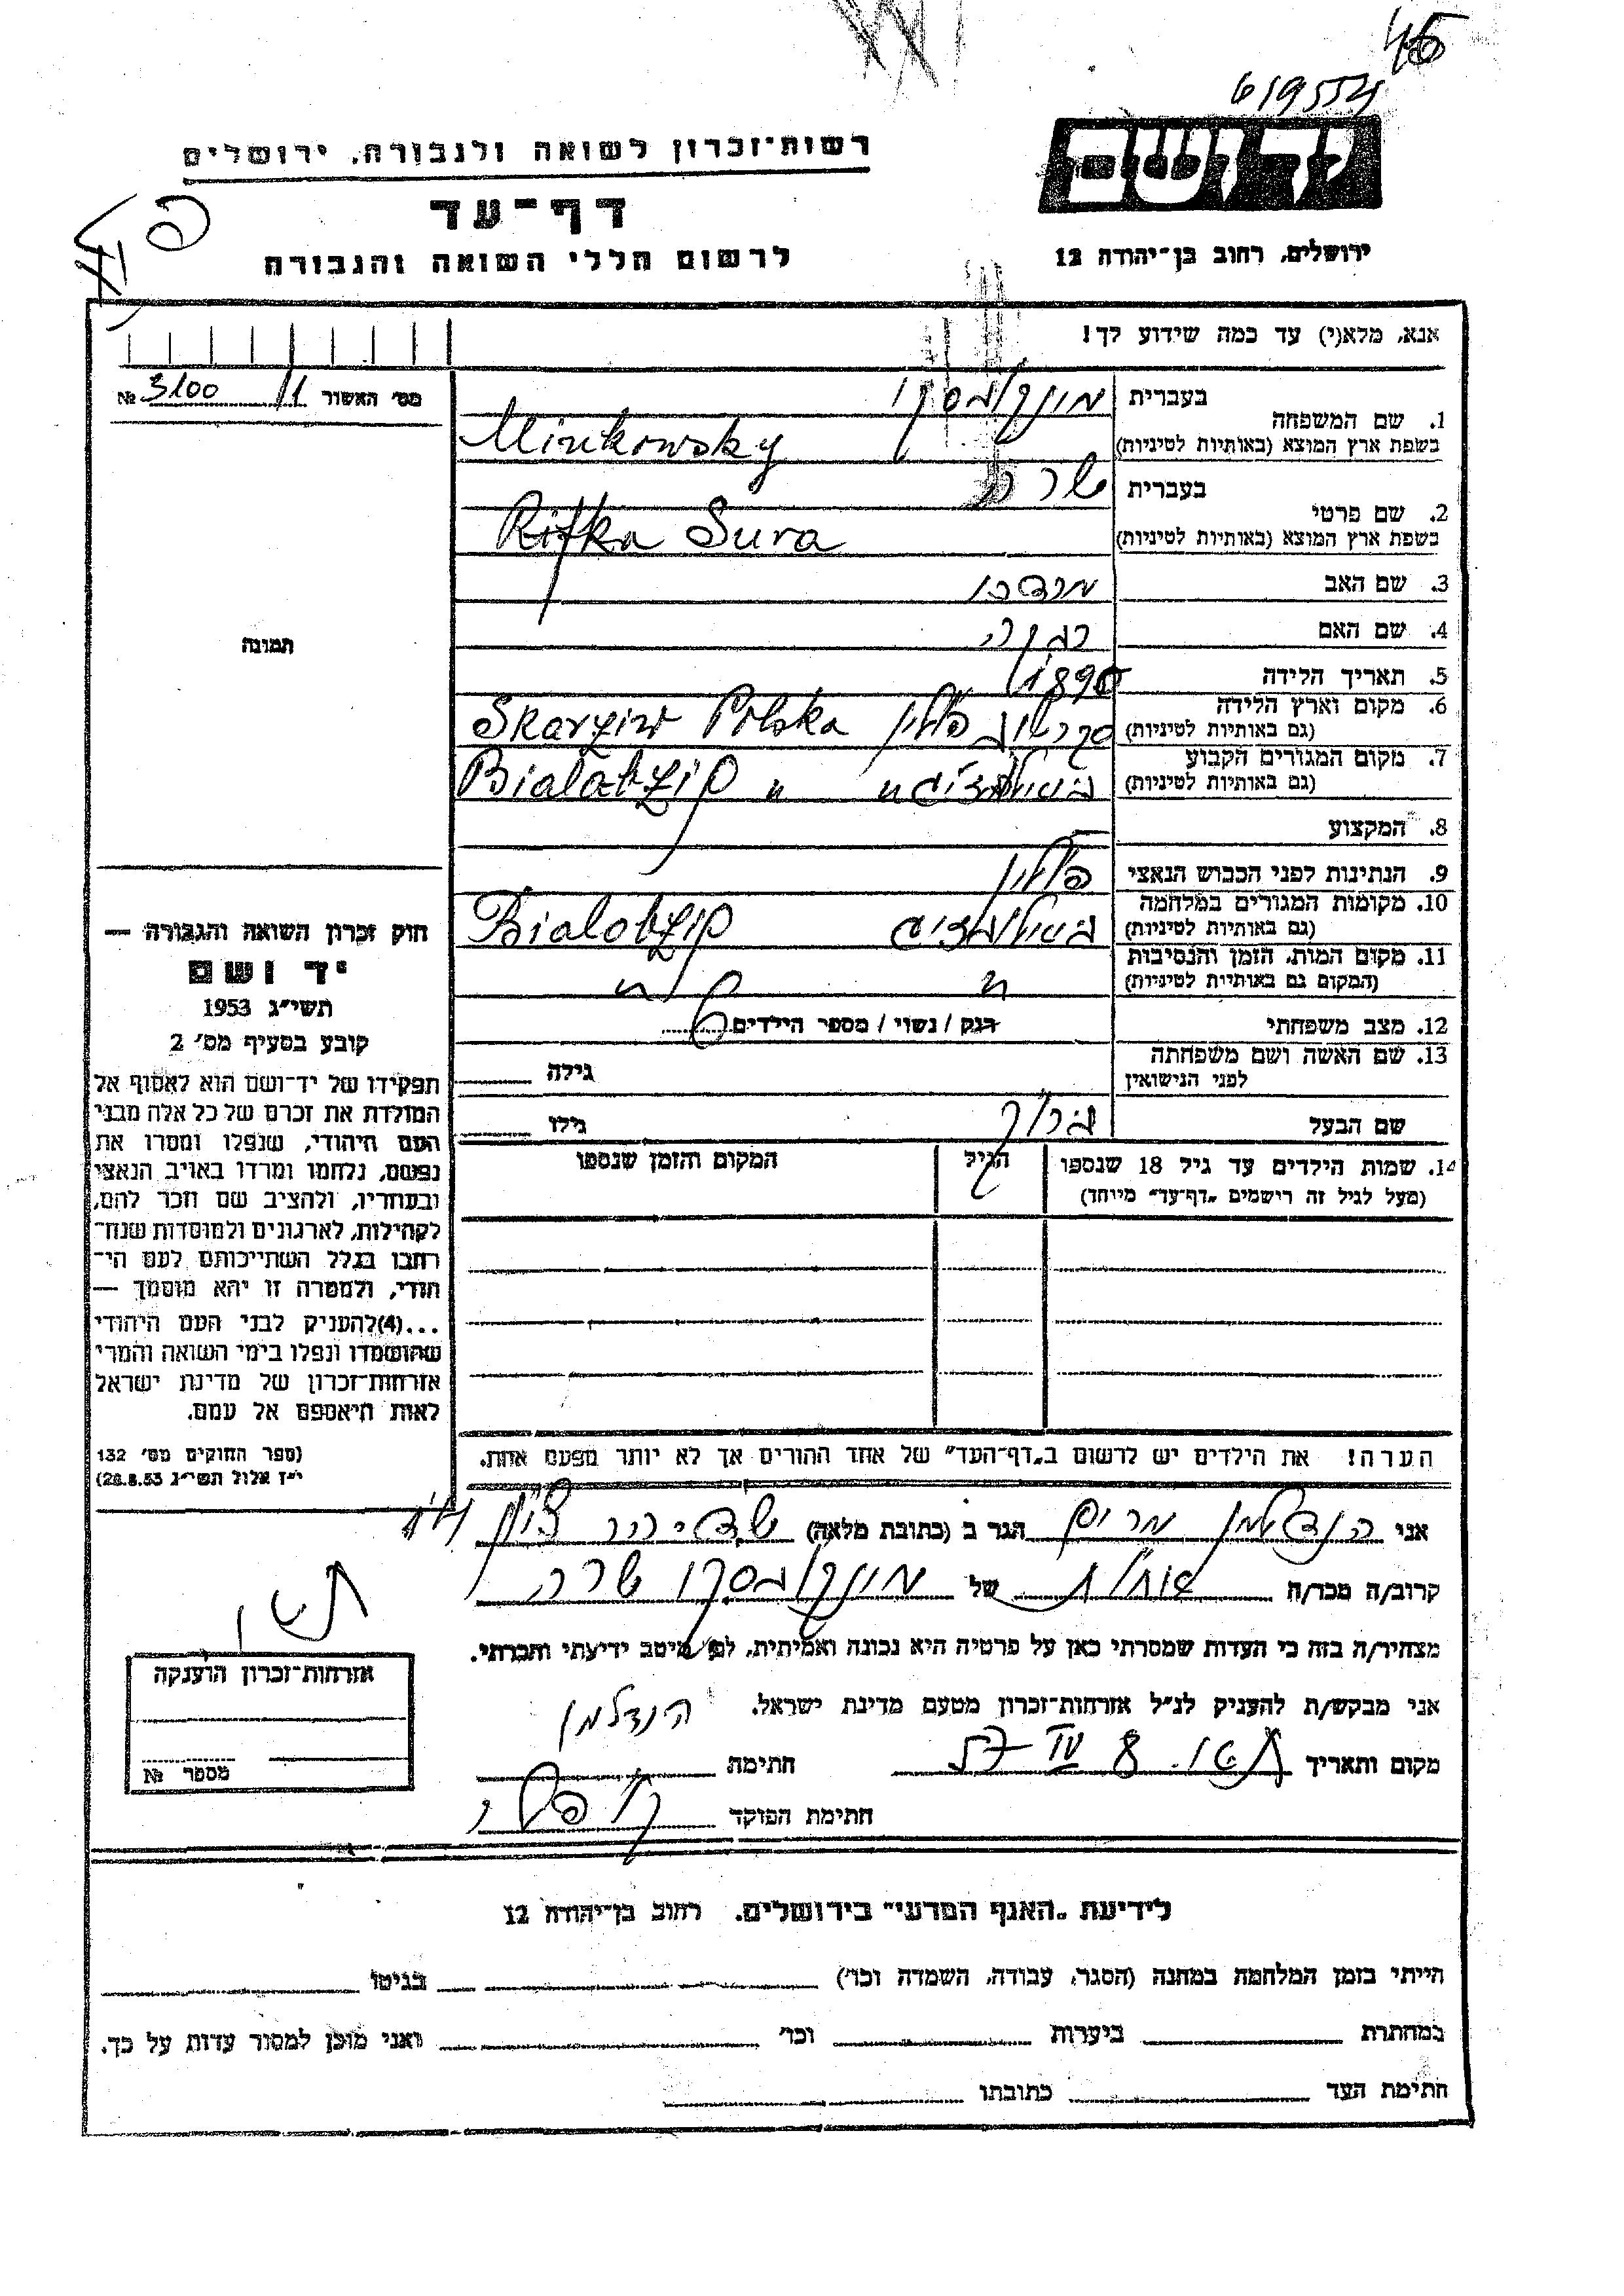 46
619554
רשות־זכרון לשואה ולגבורה, ירושלים
יד ושם
דף־עד
לרשום חללי השואה והגבורה
ירושלים, רחוב בן־יהודה 12
אנא, מלא(י) עד כמה שידוע לך!
מס׳ האשור 11 3100 №
1. שם המשפחה
בעברית מינקובסקי
בשפת ארץ המוצא (באותיות לטיניות) Minkowsky
2. שם פרטי
בעברית שרה
בשפת ארץ המוצא (באותיות לטיניות) Rifka Sura
3. שם האב מרדכי
4. שם האם
5. תאריך הלידה 1890
6. מקום וארץ הלידה
(גם באותיות לטיניות) פולין Polska
7. מקום המגורים הקבוע
(גם באותיות לטיניות) " Bialobżip "
8. המקצוע —
9. הנתינות לפני הכבוש הנאצי פולין
10. מקומות המגורים במלחמה
(גם באותיות לטיניות) Bialobżip
11. מקום המות, הזמן והנסיבות
(המקום גם באותיות לטיניות) " "
12. מצב משפחתי רנק / נשוי / מספר הילדים 6
13. שם האשה ושם משפחתה
לפני הנישואין גילה
שם הבעל ברוך גילו
14. שמות הילדים עד גיל 18 שנספו
(מעל לגיל זה רישמים „דף־עד" מיוחד)
הגיל
המקום והזמן שנספו
הערה! את הילדים יש לרשום ב„דף־העד" של אחד ההורים אך לא יותר מפעם אחת.
תמונה
חוק זכרון השואה והגבורה —
יד ושם
תשי"ג 1953
קובע בסעיף מס׳ 2
תפקידו של יד־ושם הוא לאסוף אל
המולדת את זכרם של כל אלה מבני
העם היהודי, שנפלו ומסרו את
נפשם, נלחמו ומרדו באויב הנאצי
ובעוזריו, ולהציב שם וזכר להם,
לקהילות, לארגונים ולמוסדות שנח־
רבו בגלל השתייכותם לעם הי־
הודי, ולמטרה זו יהא מוסמך —
...(4) להעניק לבני העם היהודי
שהושמדו ונפלו בימי השואה והמרי
אזרחות־זכרון של מדינת ישראל
לאות היאספם אל עמם.
(ספר החוקים מס׳ 132
י"ז אלול תשי"ג 28.8.53)
אני הנדלמן מרים הגר ב (כתובת מלאה)
קרוב/ה מכר/ה אחות של מינקובסקי שרה
מצהיר/ה בזה כי העדות שמסרתי כאן על פרטיה היא נכונה ואמיתית, לפי מיטב ידיעתי והכרתי.
אני מבקש/ת להעניק לנ"ל אזרחות־זכרון מטעם מדינת ישראל.
מקום ותאריך 8 חתימה הנדלמן
חתימת הפוקד
אזרחות־זכרון הוענקה
מספר №
לידיעת „האגף המדעי" בירושלים, רחוב בן־יהודה 12
הייתי בזמן המלחמה במחנה (הסגר, עבודה, השמדה וכו׳) בגיטו
במחתרת ביערות וכו׳ ואני מוכן למסור עדות על כך.
חתימת העד כתובתו